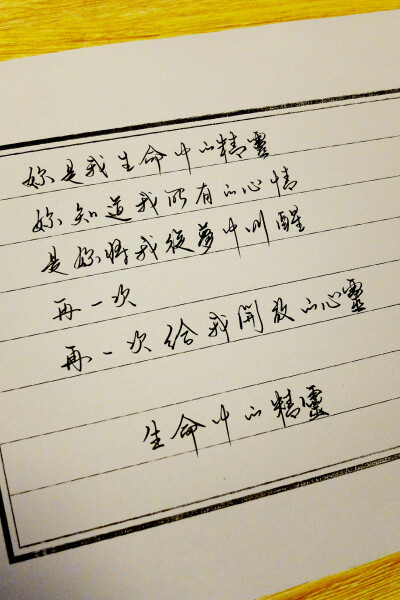 妳是我生命中的精靈
妳知道我所有的心情
是妳將我從夢中叫醒
再一次
再一次給我開放的心靈
生命中的精靈